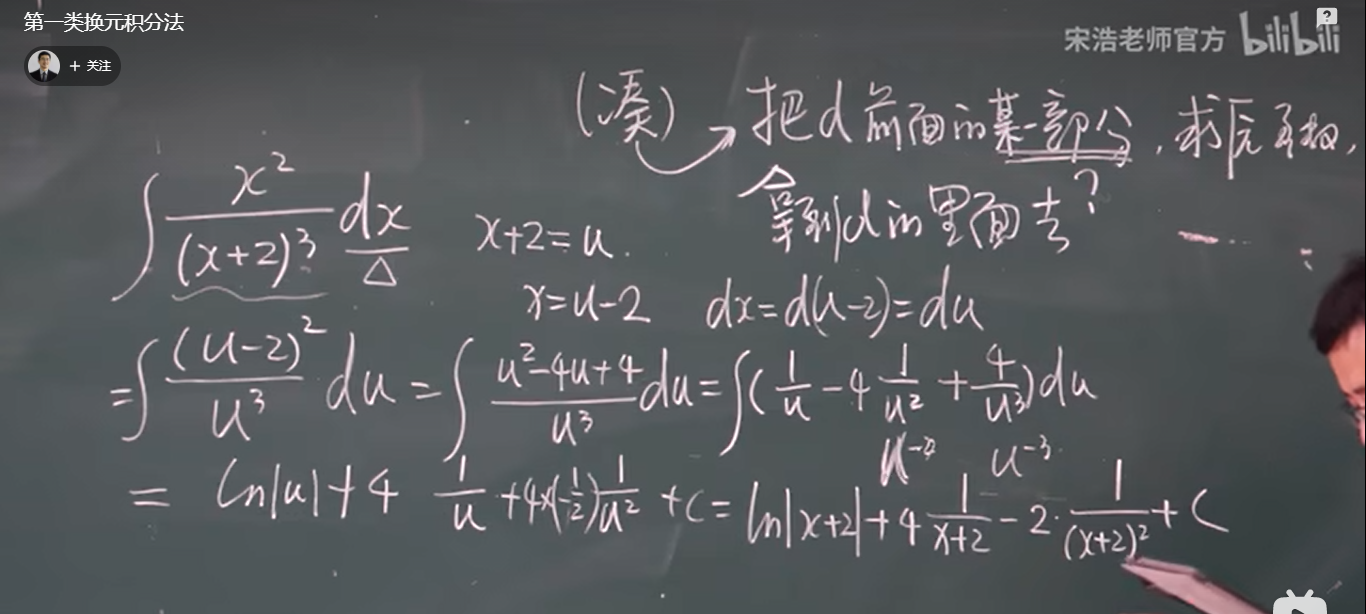 第一类换元积分法
+ 关注
宋浩老师官方 bilibili
(凑) 把d前面的某一部分,求原函数,
拿到d的里面去?
∫ x²/(x+2)³ dx x+2=u.
△
x=u-2 dx=d(u-2)=du
=∫ (u-2)²/u³ du = ∫ (u²-4u+4)/u³ du = ∫(1/u - 4 1/u² + 4/u³)du
u⁻² u⁻³
= ln|u|+4 1/u +4×(-1/2)1/u² +C = ln|x+2|+4 1/(x+2) -2· 1/(x+2)² + C